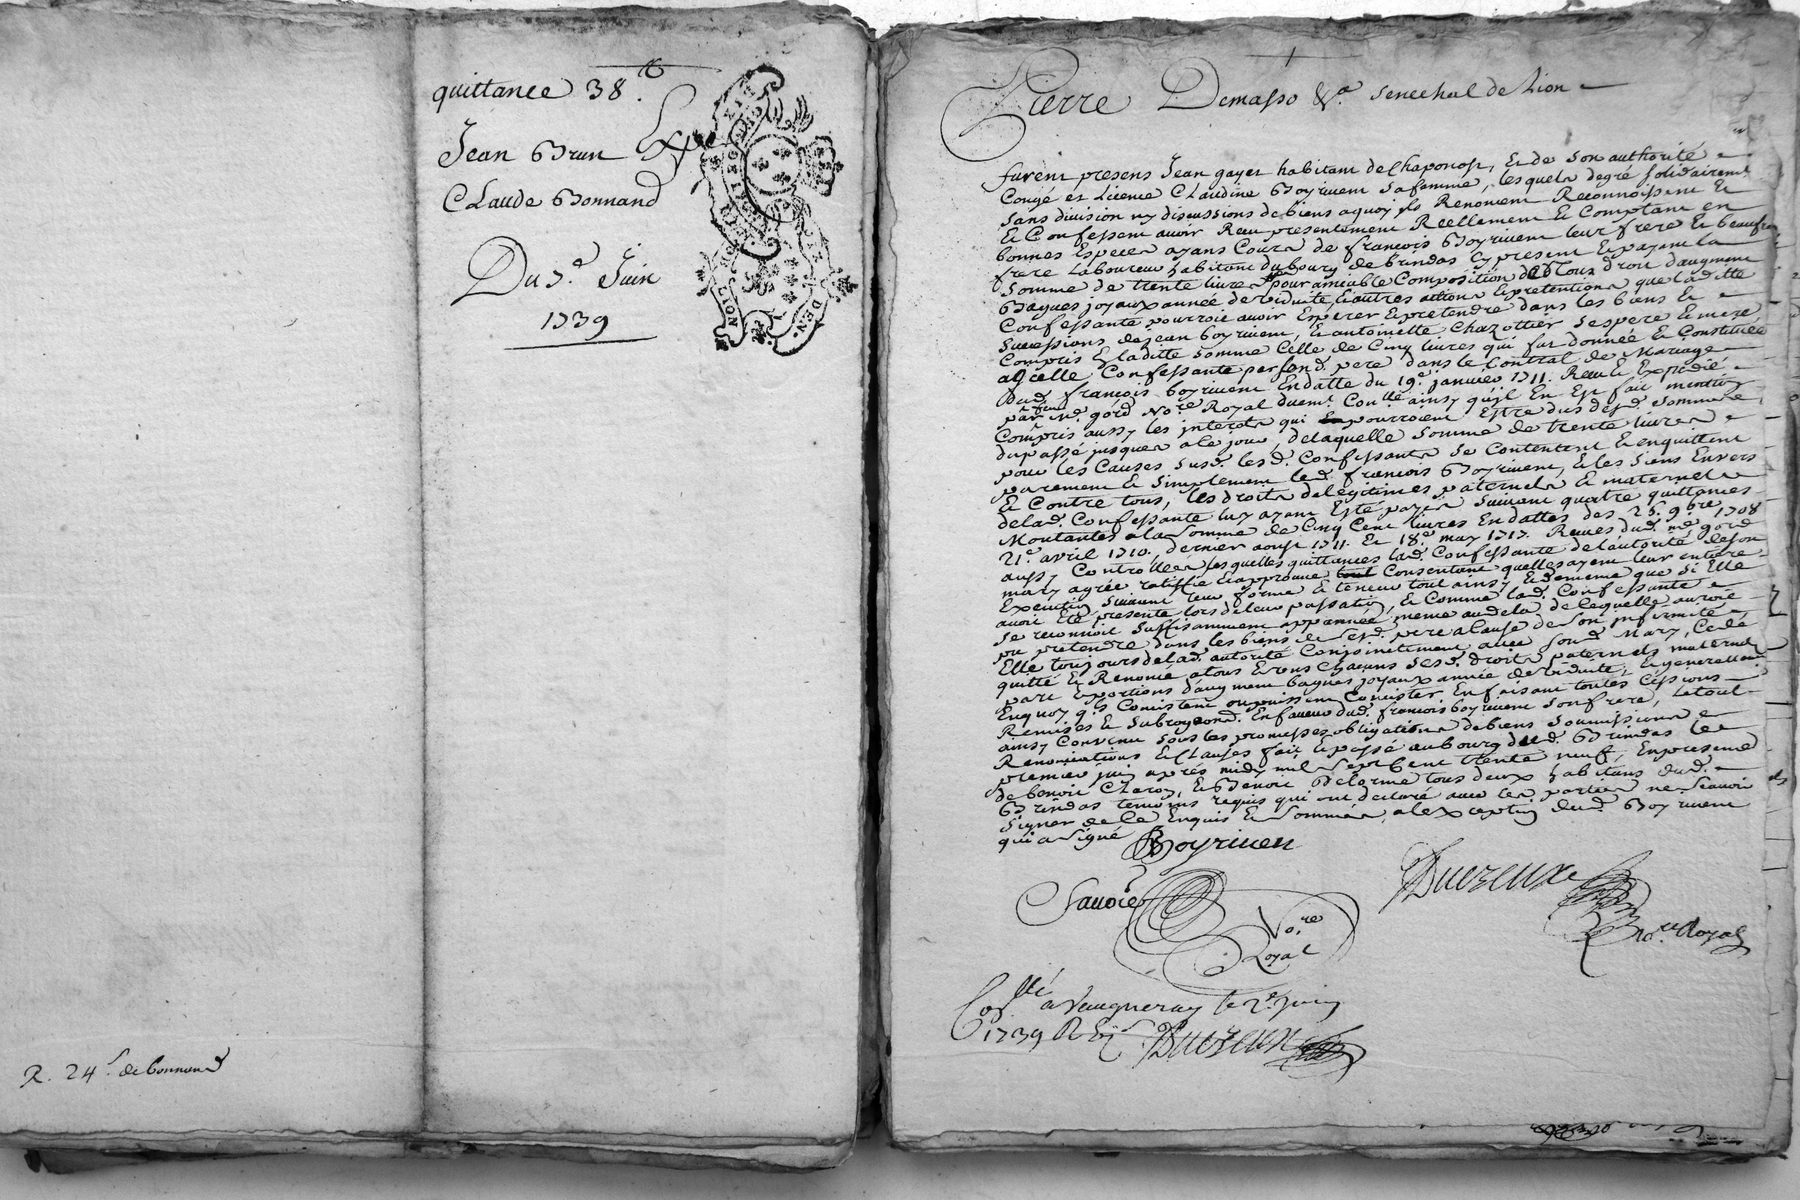 quittance 38.tt
Jean Brun
Claude Bonnand
Du 7.e Juin
1739
R. 24 s de bonnand
Pierre Demasso &.a senechal de Lion
furent presens Jean gayet habitant de Chaponost, et de son authorité
Congé et Licence Claudine Boyrivent sa femme, lesquels degré solidairemt
sans division ny discussions de biens a quoy ils Renoncent Reconnoissent Et
Et Confessent avoir Reçu presentement Reellement Et Comptant en
bonnes Especes ayans Cours de françois Boyrivent leur frere Et beaufrere
frere Laboureur habitant du bourg de brindas Cy present Et payant la
somme de trente livres pour amiable Composition de tous droit d'augment
Bagues joyaux année de viduité, Et autres actions Et pretentions que laditte
Confessante pourroit avoir Esperer Et pretendre dans les biens Et
successions de jean boyrivent, Et antoinette Chazottier ses pere Et mere,
Compris En laditte somme Celle de Cinq livres qui fut donnée Et Constituée
a icelle Confessante par sond. pere dans le Contrat de Mariage
dud. françois boyrivent En datte du 19.e janvier 1711. Reçu Et Expedié
par me gord No.re Royal duemt. Con.llé ainsy qu'il En Est fait mention
Compris aussy les interets qui pourroient Estre dus desd. sommes
du passé jusques a le jour, de laquelle somme de trente livres
pour les Causes susd. lesd. Confessants se Contentent Et en quittent
purement Et simplement led. françois Boyrivent, Et les siens Envers
Et Contre tous, les droits de legitimes paternels Et maternels
de lad. Confessante luy ayant Esté payés suivant quatre quittances
Montantes a la somme de Cinq Cent livres En dattes des 25. 9.bre 1708
21.e avril 1710, dernier aoust 1711. Et 18.e may 1717. Reçues dud. me gord
aussy Controllées lesquelles quittances lad. Confessante de l'autorité de son
mary agrée ratiffie Et approuve Consentant quelles ayent leur entiere
Execution suivant leur forme Et teneur tout ainsy Et de meme que si Elle
avoit Eté presente lors de leur passation, Et Comme lad. Confessante
se reconnoit suffisamment appannée meme au dela de lequelle auroit
pu pretendre dans les biens de sesd. pere a Cause de son infirmité,
Elle toujours de lad. autorité Conjointement avec sond. Mary, Cede
quitte Et Renonce a tous Et uns Chacuns sesd. droits paternels maternels
part Et portions d'augment bagues joyaux année de viduité, Et generallemt
En quoy qu'ils Consistent ou puissent Consister En faisant toutes Cessions
Remises Et subrogeons. En faveur dud. françois boyrivent son frere, le tout
ainsy Convenu sous les promesses obligations de biens soumissions Et
Renonciations Et Clauses fait Et passé au bourg dud. Brindas le
premier juin aprés midy mil sept Cent trente neuf, En presence
de benoit Claron, Et Benoit Delorme tous deux habitans dud.
Brindas temoins requis qui ont declaré avec les parties ne sçavoir
signer de Ce Enquis Et sommés, a l'exception dud. Boyrivent
qui a signé Boyriven
Savoie No.re Royal
Duvzeuxe
no.re Royal
Con.llé a Vaugneray le 2.e juin
1739 R